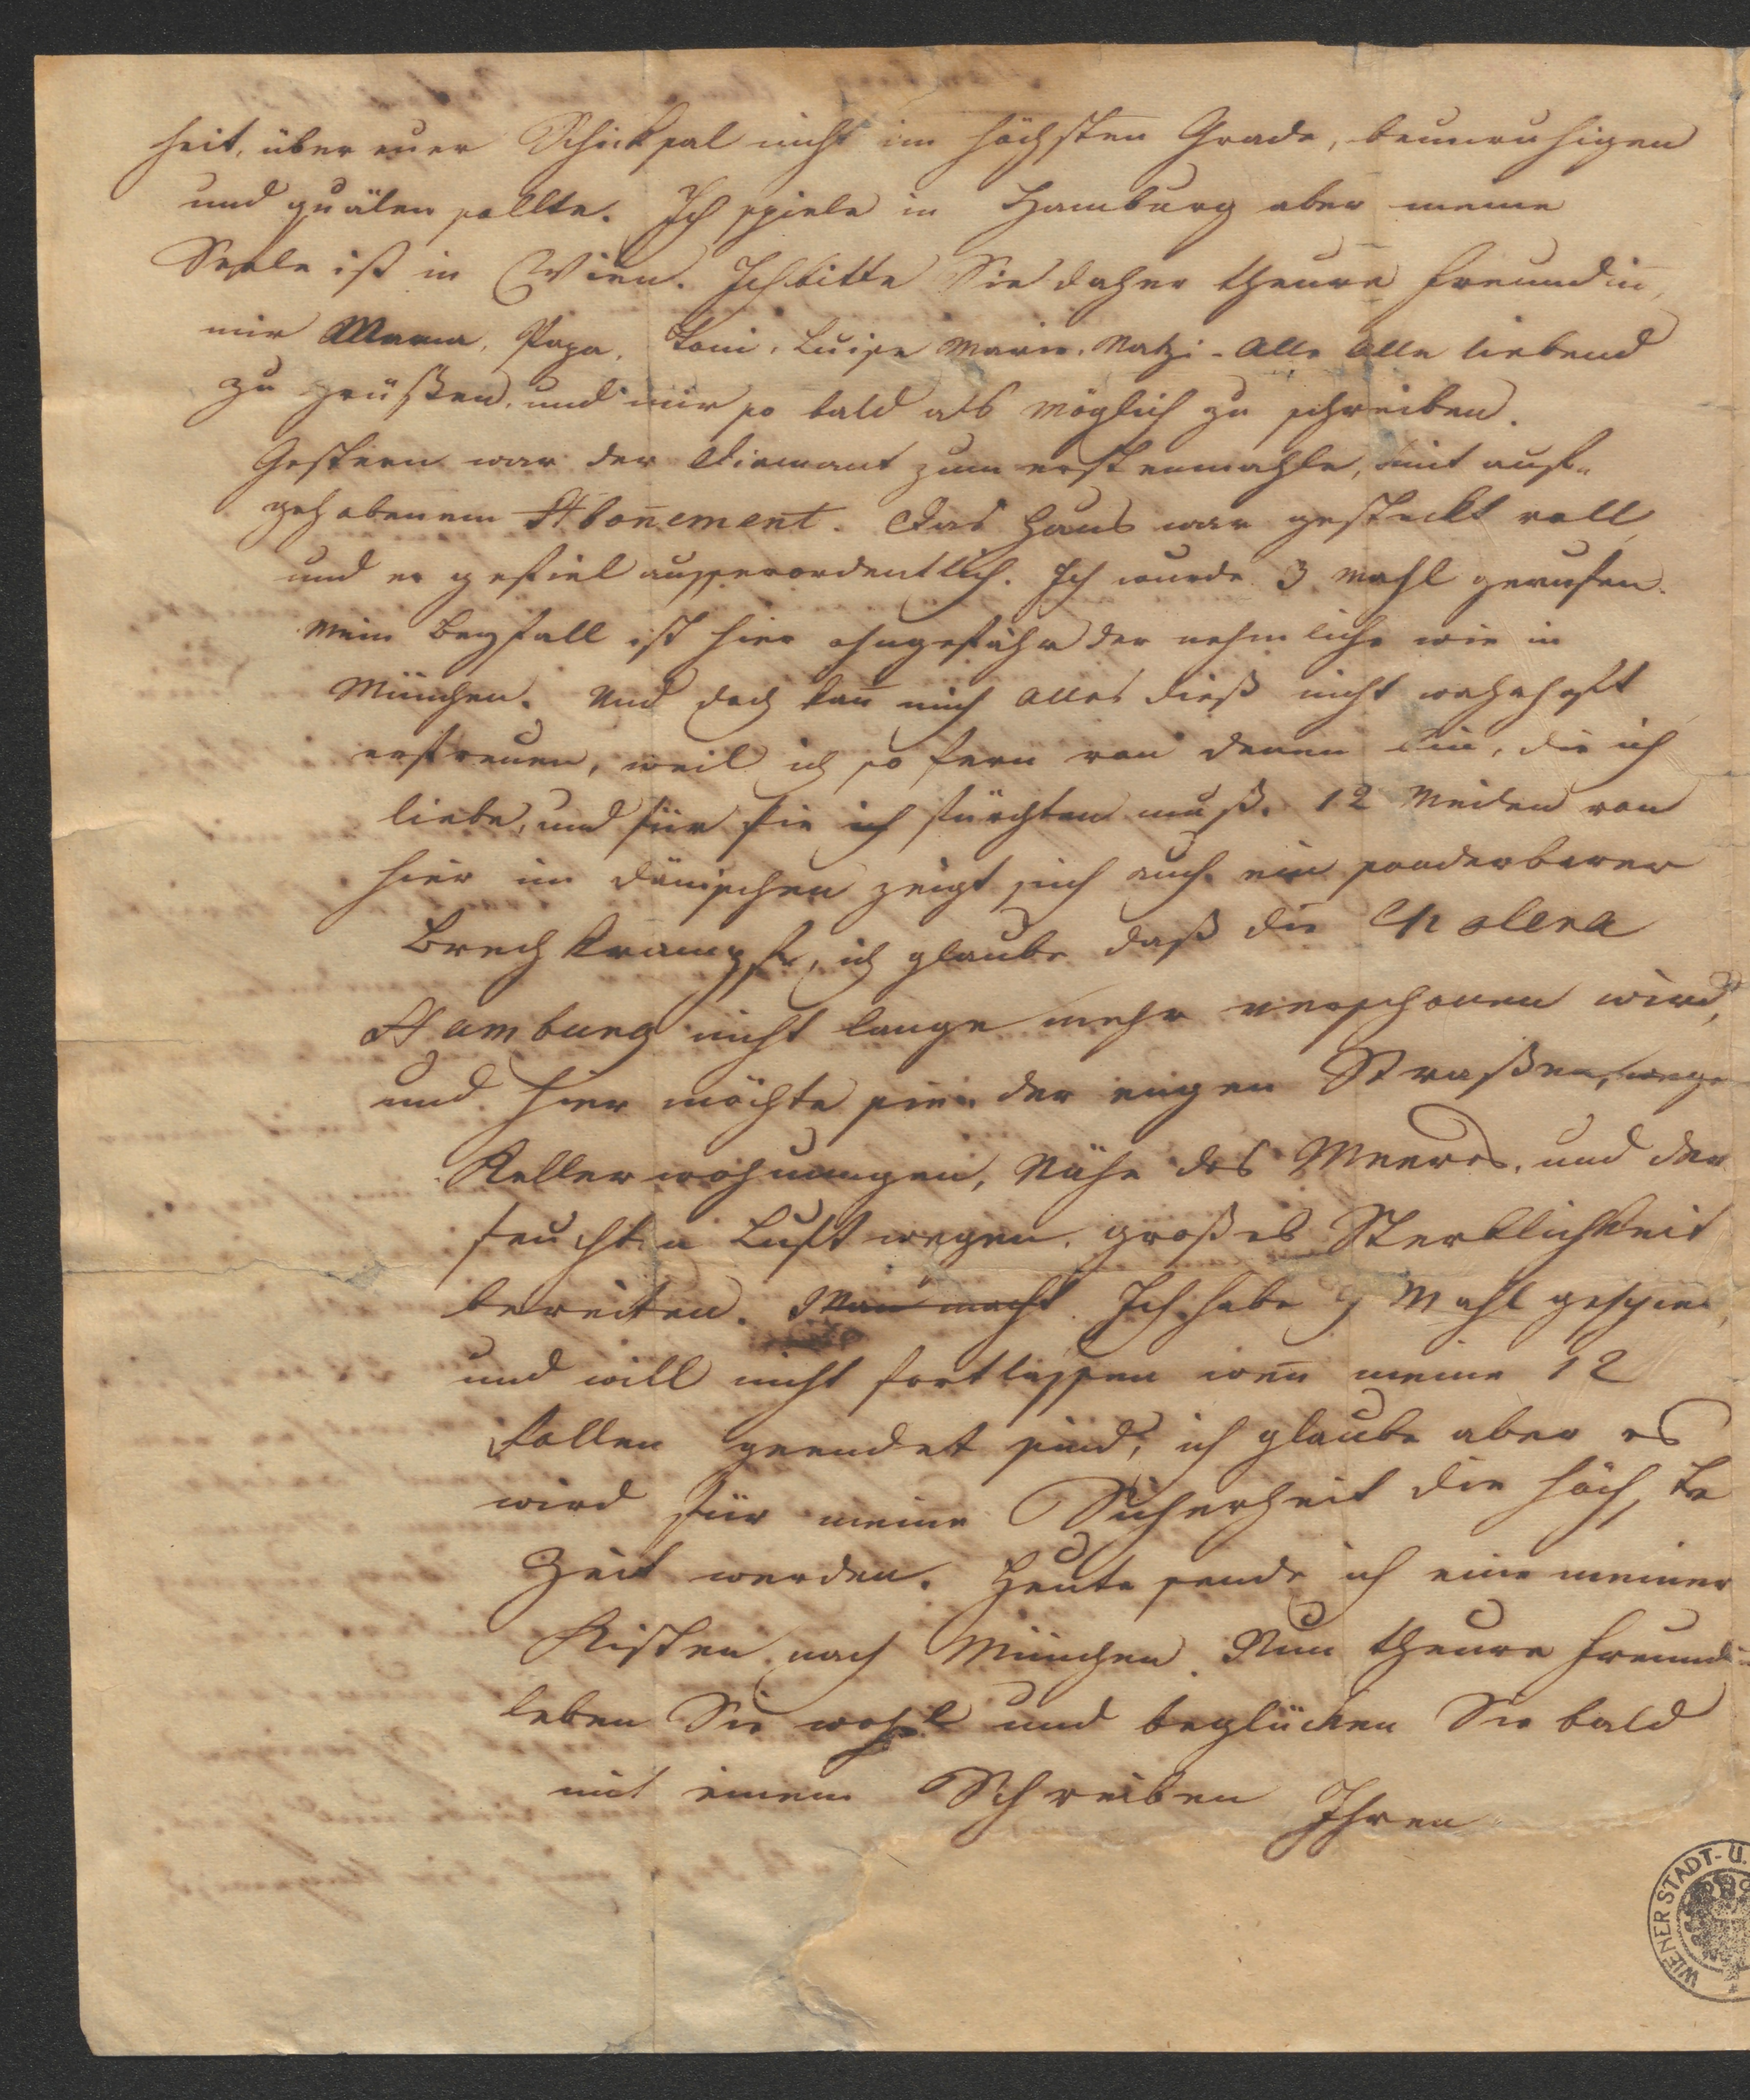 heit, über euer Schicksal nicht im höchsten Grade, beunruhigen
und quälen sollte. Ich spiele in Hamburg aber meine
Seele ist in Wien. Ich bitte Sie daher theure Freundin̅,
mir Mama, Papa, Toni, Luise Marie, Natzi - Alle Alle liebend
zu grüßen, und mir so bald als möglich zu schreiben.
Gestern war der Diamant zum erstenmahle, mit auf„
gehobenem Abon̅ement. Das Haus war gesteckt voll
und er gefiel ausserordentlich. Ich wurde 3 mahl gerufen.
Mein Beyfall ist hier ohngefähr der nehmliche wie in
München. Und doch kan̅ mich Alles dieß nicht wahrhaft
erfreuen, weil ich so fern von denen bin, die ich
liebe, und für die ich fürchten muß. 12 Meilen von
hier im Dänischen zeigt sich auch ein sonderbarer
Brechkrampf, ich glaube daß die Cholera
Hamburg nicht lange mehr verschonen wird,
und hier möchte sie der engen Straßen, wege
Kellerwohnungen, Nähe des Meeres, und der
feuchten Luft wegen, großes Sterblichkeit
bereiten. Man macht Ich habe 9 Mahl gespie
und will nicht fortlassen wen̅ meine 12
Rollen geendet sind, ich glaube aber es
wird für meine Sicherheit die höchste
Zeit werden. Heute sende ich eine meiner
Kisten nach München. Nun theure Freundi
leben Sie wohl und beglücken Sie bald
mit einem Schreiben Ihren
WIENER STADT- U.